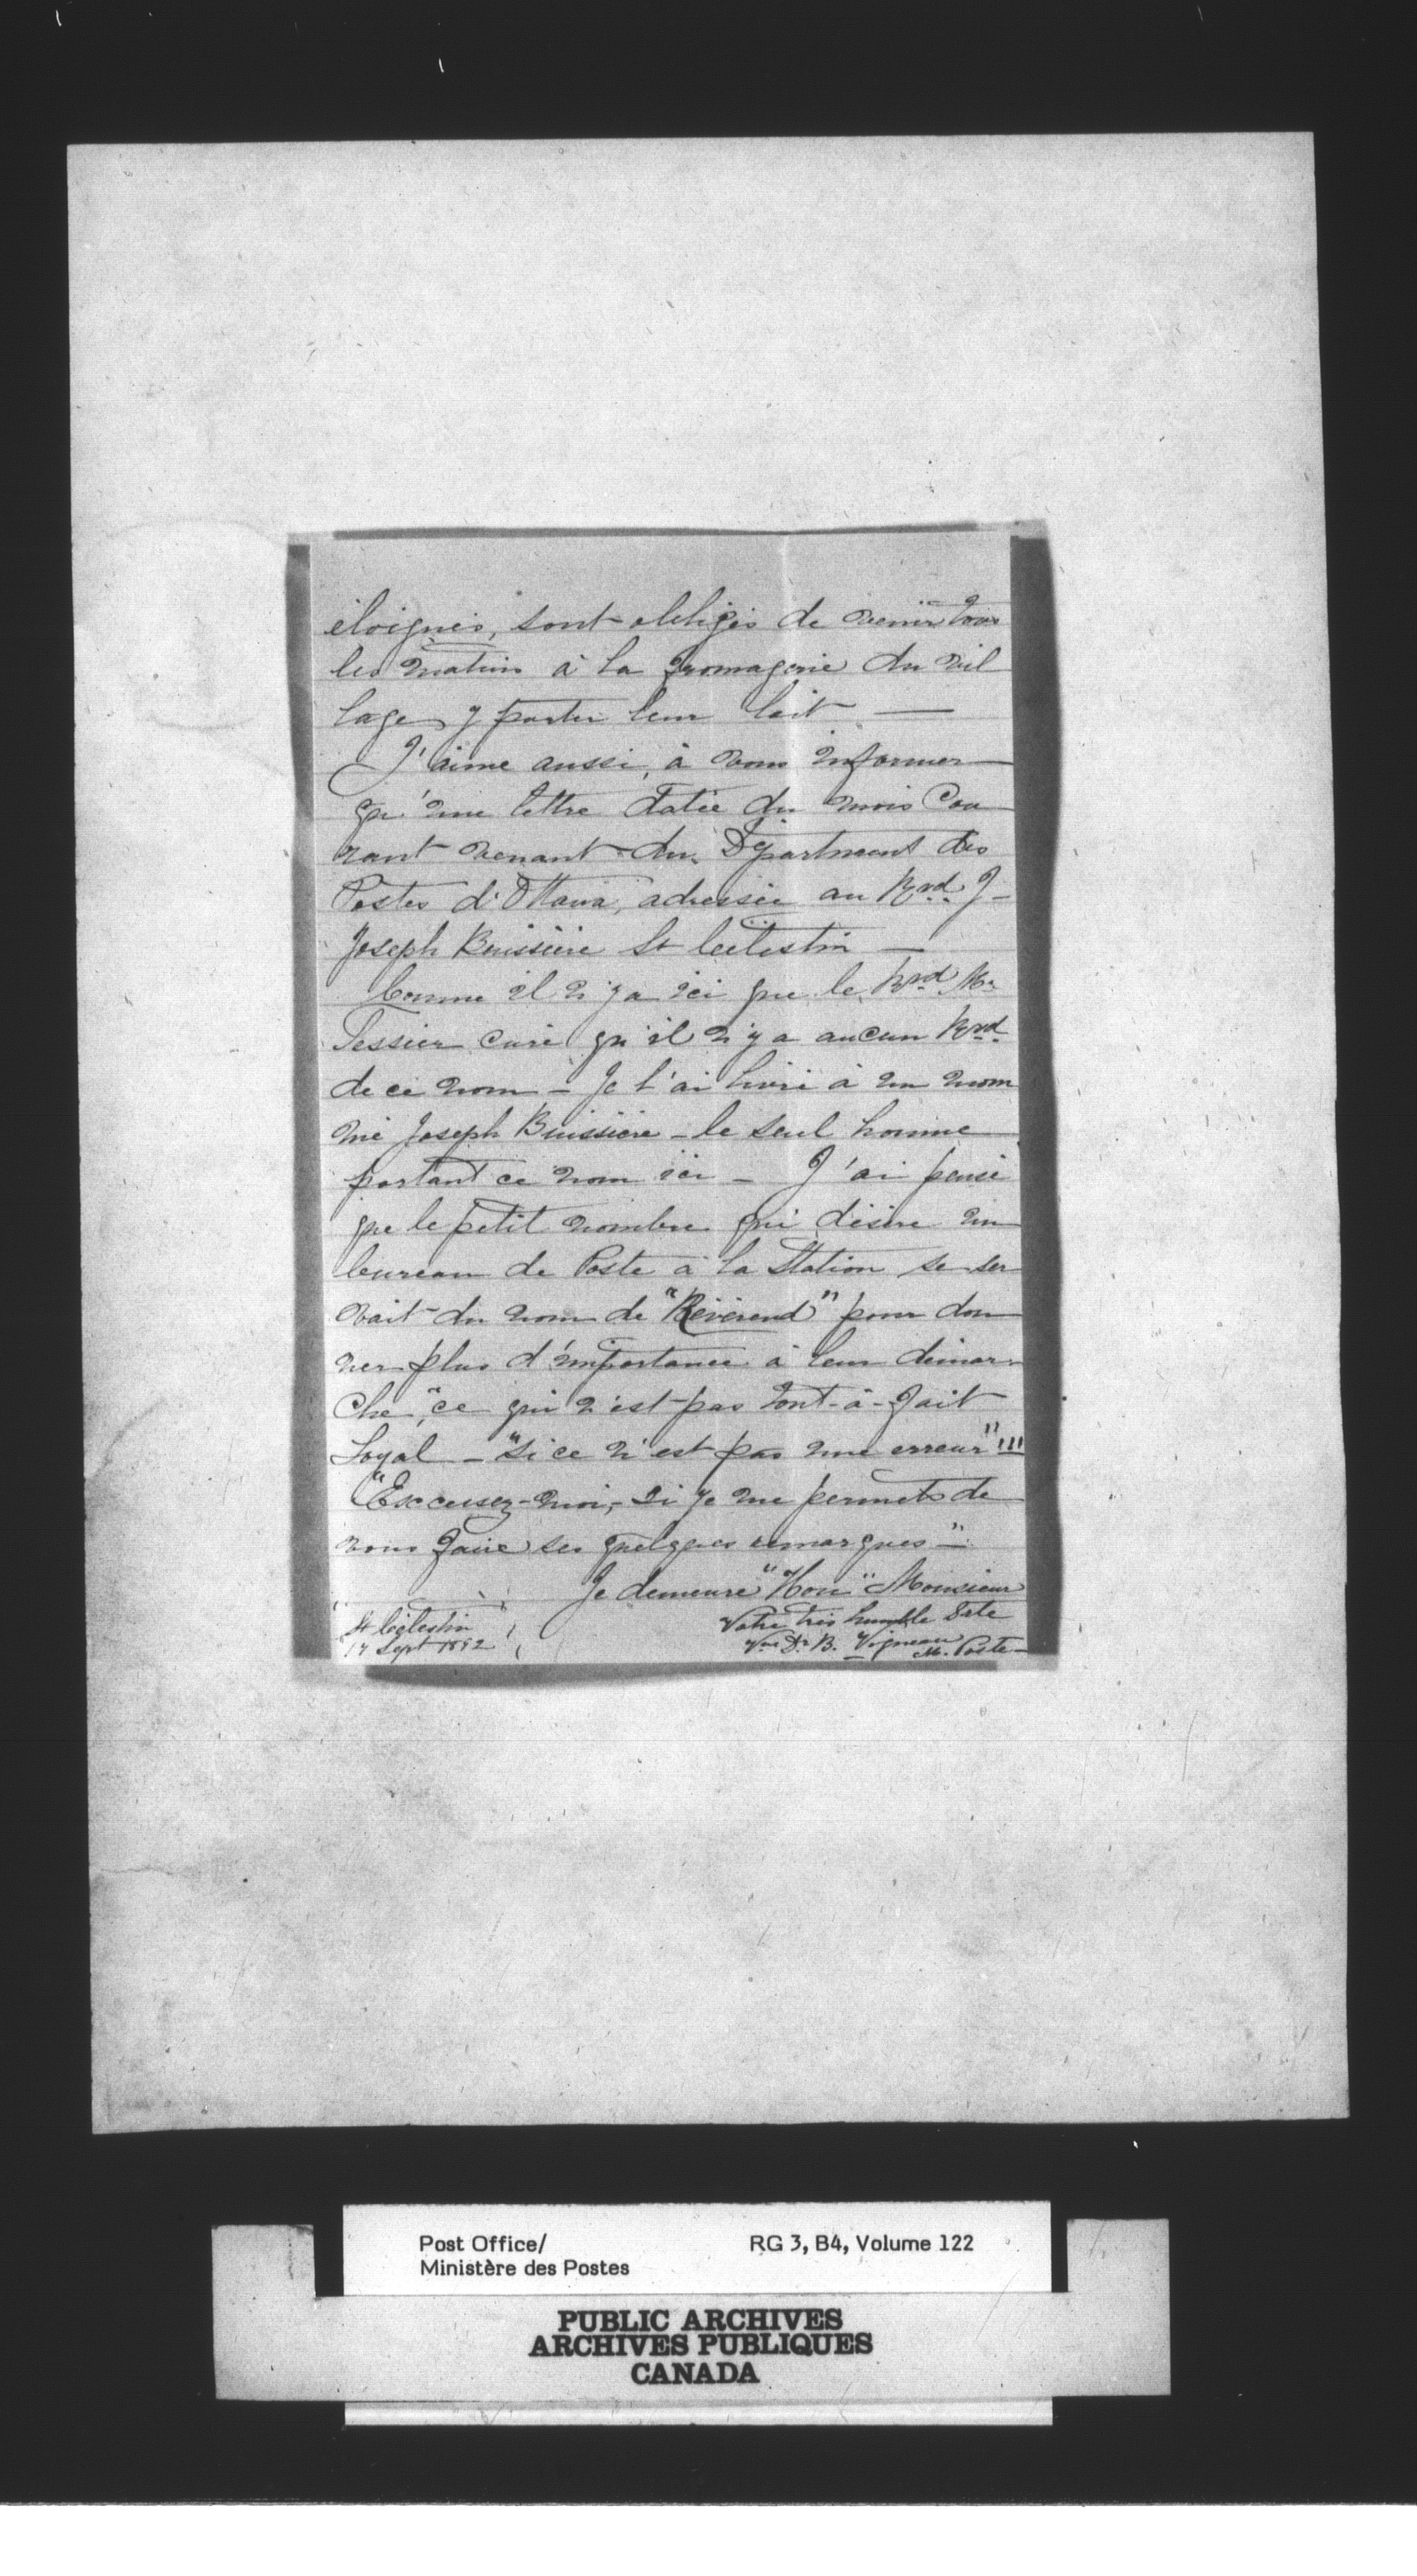 éloignés, sont obligés de venir tous
les matins à la fromagerie du vil
lage y porter leur lait —
J'aime aussi, à vous informer
qu'une lettre datée du mois Cou
rant venant du Départment des
Postes d'Ottawa, adressée au Rvd. J-
Joseph Buissière St Célestin —
Comme il n'y a ici que le Rvd Mr
Tessier curé qu'il n'y a aucun Rvd.
de ce nom — Je l'ai livré à un nom
mé Joseph Buissière — le seul homme
portant ce nom ici — J'ai pensé
que le petit nombre qui désire un
bureau de Poste à la Station se ser
vait du nom de "Révérend" pour don
ner plus d'importance à leur démar-
che, "ce qui n'est pas tout-à-fait
Loyal — "si ce n'est pas une erreur"!!!
"Exccusez-moi, si je me permets de
vous faire ses quelques remarques" —
Je demeure "Hon" Monsieur
Votre très humble
St Célestin
17 Sept 1892
Dr B. Vigneau
M. Poste —
Post Office/
Ministère des Postes
RG 3, B4, Volume 122
PUBLIC ARCHIVES
ARCHIVES PUBLIQUES
CANADA